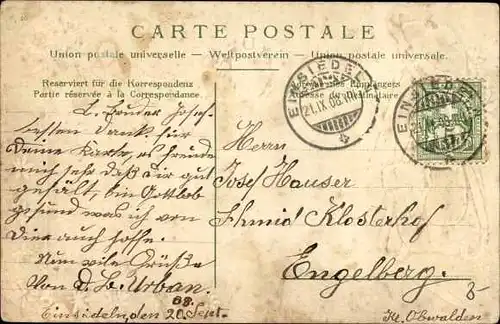 CARTE POSTALE
Union postale universelle — Weltpostverein — Union postale universale.
Reserviert für die Korrespondenz
Partie réservée à la Correspondance.
EINSIEDELN
21.IX.08.
EINSIEDELN
L. Bruder Josef
besten Dank für
Deine Karte, es freude
mich sehr daß Dir gut
gefällt, bin Gottlob
gesund was ich von
Dir auch hoffe.
Nun viele Grüße
von D. b. Urban.
08.
Einsiedeln, den 20. Sept.
Herrn
Josef Hauser
Schmid Klosterhof
Engelberg.
Kt. Obwalden